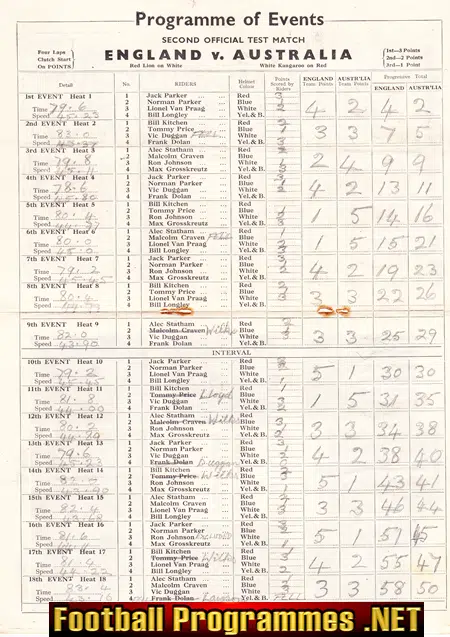 Programme of Events
SECOND OFFICIAL TEST MATCH
ENGLAND v. AUSTRALIA
Four Laps
Clutch Start
On POINTS
Red Lion on White
White Kangaroo on Red
1st—3 Points
2nd—2 Points
3rd—1 Point
Detail No. RIDERS Helmet Colour Points Scored by Riders ENGLAND Team Points AUST'LIA Team Points Progressive Total ENGLAND AUST'LIA
1st EVENT Heat 1 1 Jack Parker Red
2 Norman Parker Blue
Time 79.6 3 Lionel Van Praag White 4 2 4 2
Speed 4 Bill Longley Yel. & B.
2nd EVENT Heat 2 1 Bill Kitchen Red
2 Tommy Price Blue
Time 83.0 3 Vic Duggan FELL White 3 3 7 5
Speed 4 Frank Dolan Yel. & B.
3rd EVENT Heat 3 1 Alec Statham Red
2 Malcolm Craven Blue
Time 79.8 3 Ron Johnson White 2 4 9 9
Speed 4 Max Grosskreutz Yel. & B.
4th EVENT Heat 4 1 Jack Parker Red
2 Norman Parker Blue
Time 78.6 3 Vic Duggan White 4 2 13 11
Speed 45.80 4 Frank Dolan Yel. & B.
5th EVENT Heat 5 1 Bill Kitchen Red
2 Tommy Price Blue
Time 80.4 3 Ron Johnson White 1 5 14 16
Speed 4 Max Grosskreutz Yel. & B.
6th EVENT Heat 6 1 Alec Statham Red
2 Malcolm Craven FELL Blue
Time 80.0 3 Lionel Van Praag White 1 5 15 21
Speed 45.0 4 Bill Longley Yel. & B.
7th EVENT Heat 7 1 Jack Parker Red
2 Norman Parker Blue
Time 79.2 3 Ron Johnson White 4 2 19 23
Speed 45.45 4 Max Grosskreutz Yel. & B.
8th EVENT Heat 8 1 Bill Kitchen Red
2 Tommy Price Blue
Time 80.4 3 Lionel Van Praag White 3 3 22 26
Speed 4 Bill Longley Yel. & B.
9th EVENT Heat 9 1 Alec Statham Red
2 Malcolm Craven Blue
Time 82.0 3 Vic Duggan White 3 3 25 29
Speed 43.90 4 Frank Dolan Yel. & B.
INTERVAL
10th EVENT Heat 10 1 Jack Parker Red
2 Norman Parker Blue
Time 79.2 3 Lionel Van Praag White 5 1 30 30
Speed 45.45 4 Bill Longley Yel. & B.
11th EVENT Heat 11 1 Bill Kitchen Red
2 Tommy Price Lloyd Blue
Time 81.8 3 Vic Duggan White 1 5 31 35
Speed 44.00 4 Frank Dolan Yel. & B.
12th EVENT Heat 12 1 Alec Statham Red
2 Malcolm Craven Blue
Time 80.2 3 Ron Johnson White 3 3 34 38
Speed 4 Max Grosskreutz Yel. & B.
13th EVENT Heat 13 1 Jack Parker Red
2 Norman Parker Blue
Time 79.6 3 Vic Duggan White 4 2 38 40
Speed 4 Frank Dolan Yel. & B.
14th EVENT Heat 14 1 Bill Kitchen Red
2 Tommy Price Blue
Time 3 Ron Johnson White 5 43
Speed 4 Max Grosskreutz Yel. & B.
15th EVENT Heat 15 1 Alec Statham Red
2 Malcolm Craven Blue
Time 82.4 3 Lionel Van Praag White 3 3 46 44
Speed 4 Bill Longley Yel. & B.
16th EVENT Heat 16 1 Jack Parker Red
2 Norman Parker Blue
Time 81.6 3 Ron Johnson EXCLUDED White 5 51 45
Speed 4 Max Grosskreutz Yel. & B.
17th EVENT Heat 17 1 Bill Kitchen Red
2 Tommy Price Blue
Time 3 Lionel Van Praag White 4 2 55 47
Speed 4 Bill Longley Yel. & B.
18th EVENT Heat 18 1 Alec Statham Red
2 Malcolm Craven Blue
Time 83.4 3 Vic Duggan White 3 3 58 50
Speed 4 Frank Dolan Yel. & B. FELL
Football Programmes .NET